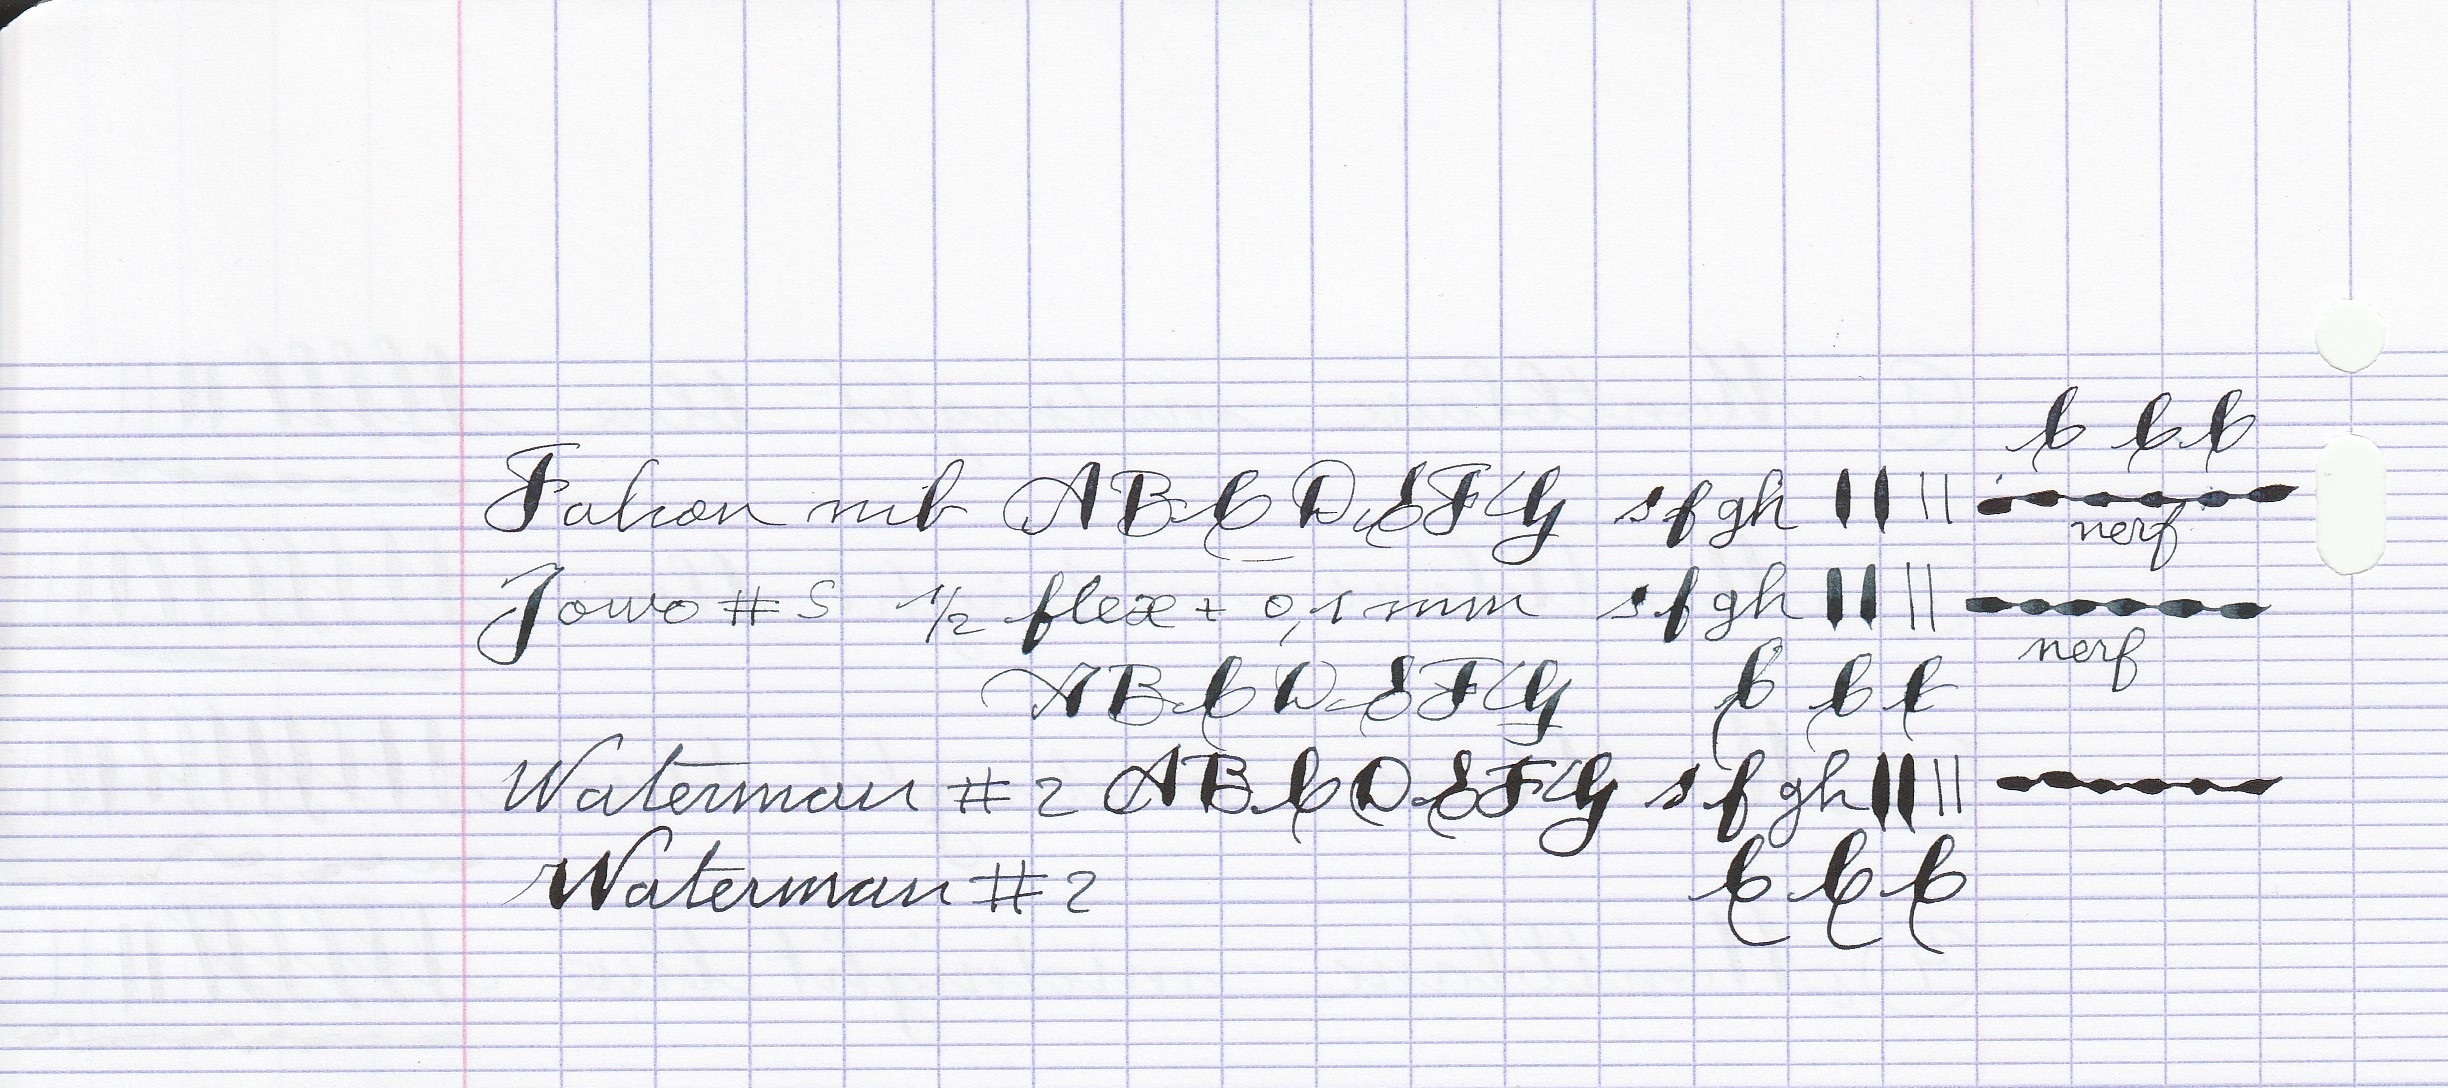 b b b
Falcon nib A B C D E F G s f g h || ||
nerf
Jowo # 5 1/2 flex + 0,1 mm s f g h || ||
nerf
A B C D E F G b b b
Waterman # 2 A B C D E F G s f g h || ||
Waterman # 2 b b b